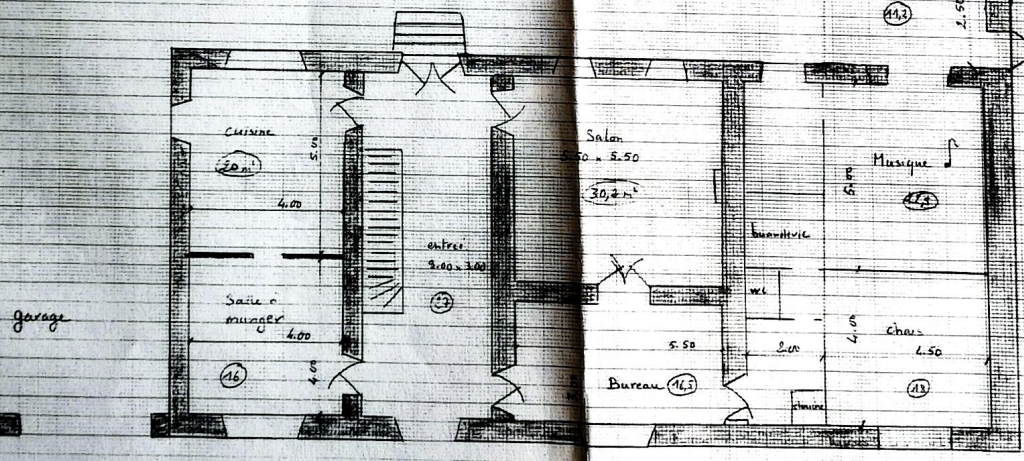 11,2
2.50
cuisine
20 m²
5.50
4.00
Salle à
manger
4.00
4.00
16
garage
entrée
9.00 x 3.00
27
Salon
5.50 x 5.50
30,2 m²
Bureau 16,5
5.50
buanderie
wc
2.00
Musique
5.50
4.50
18